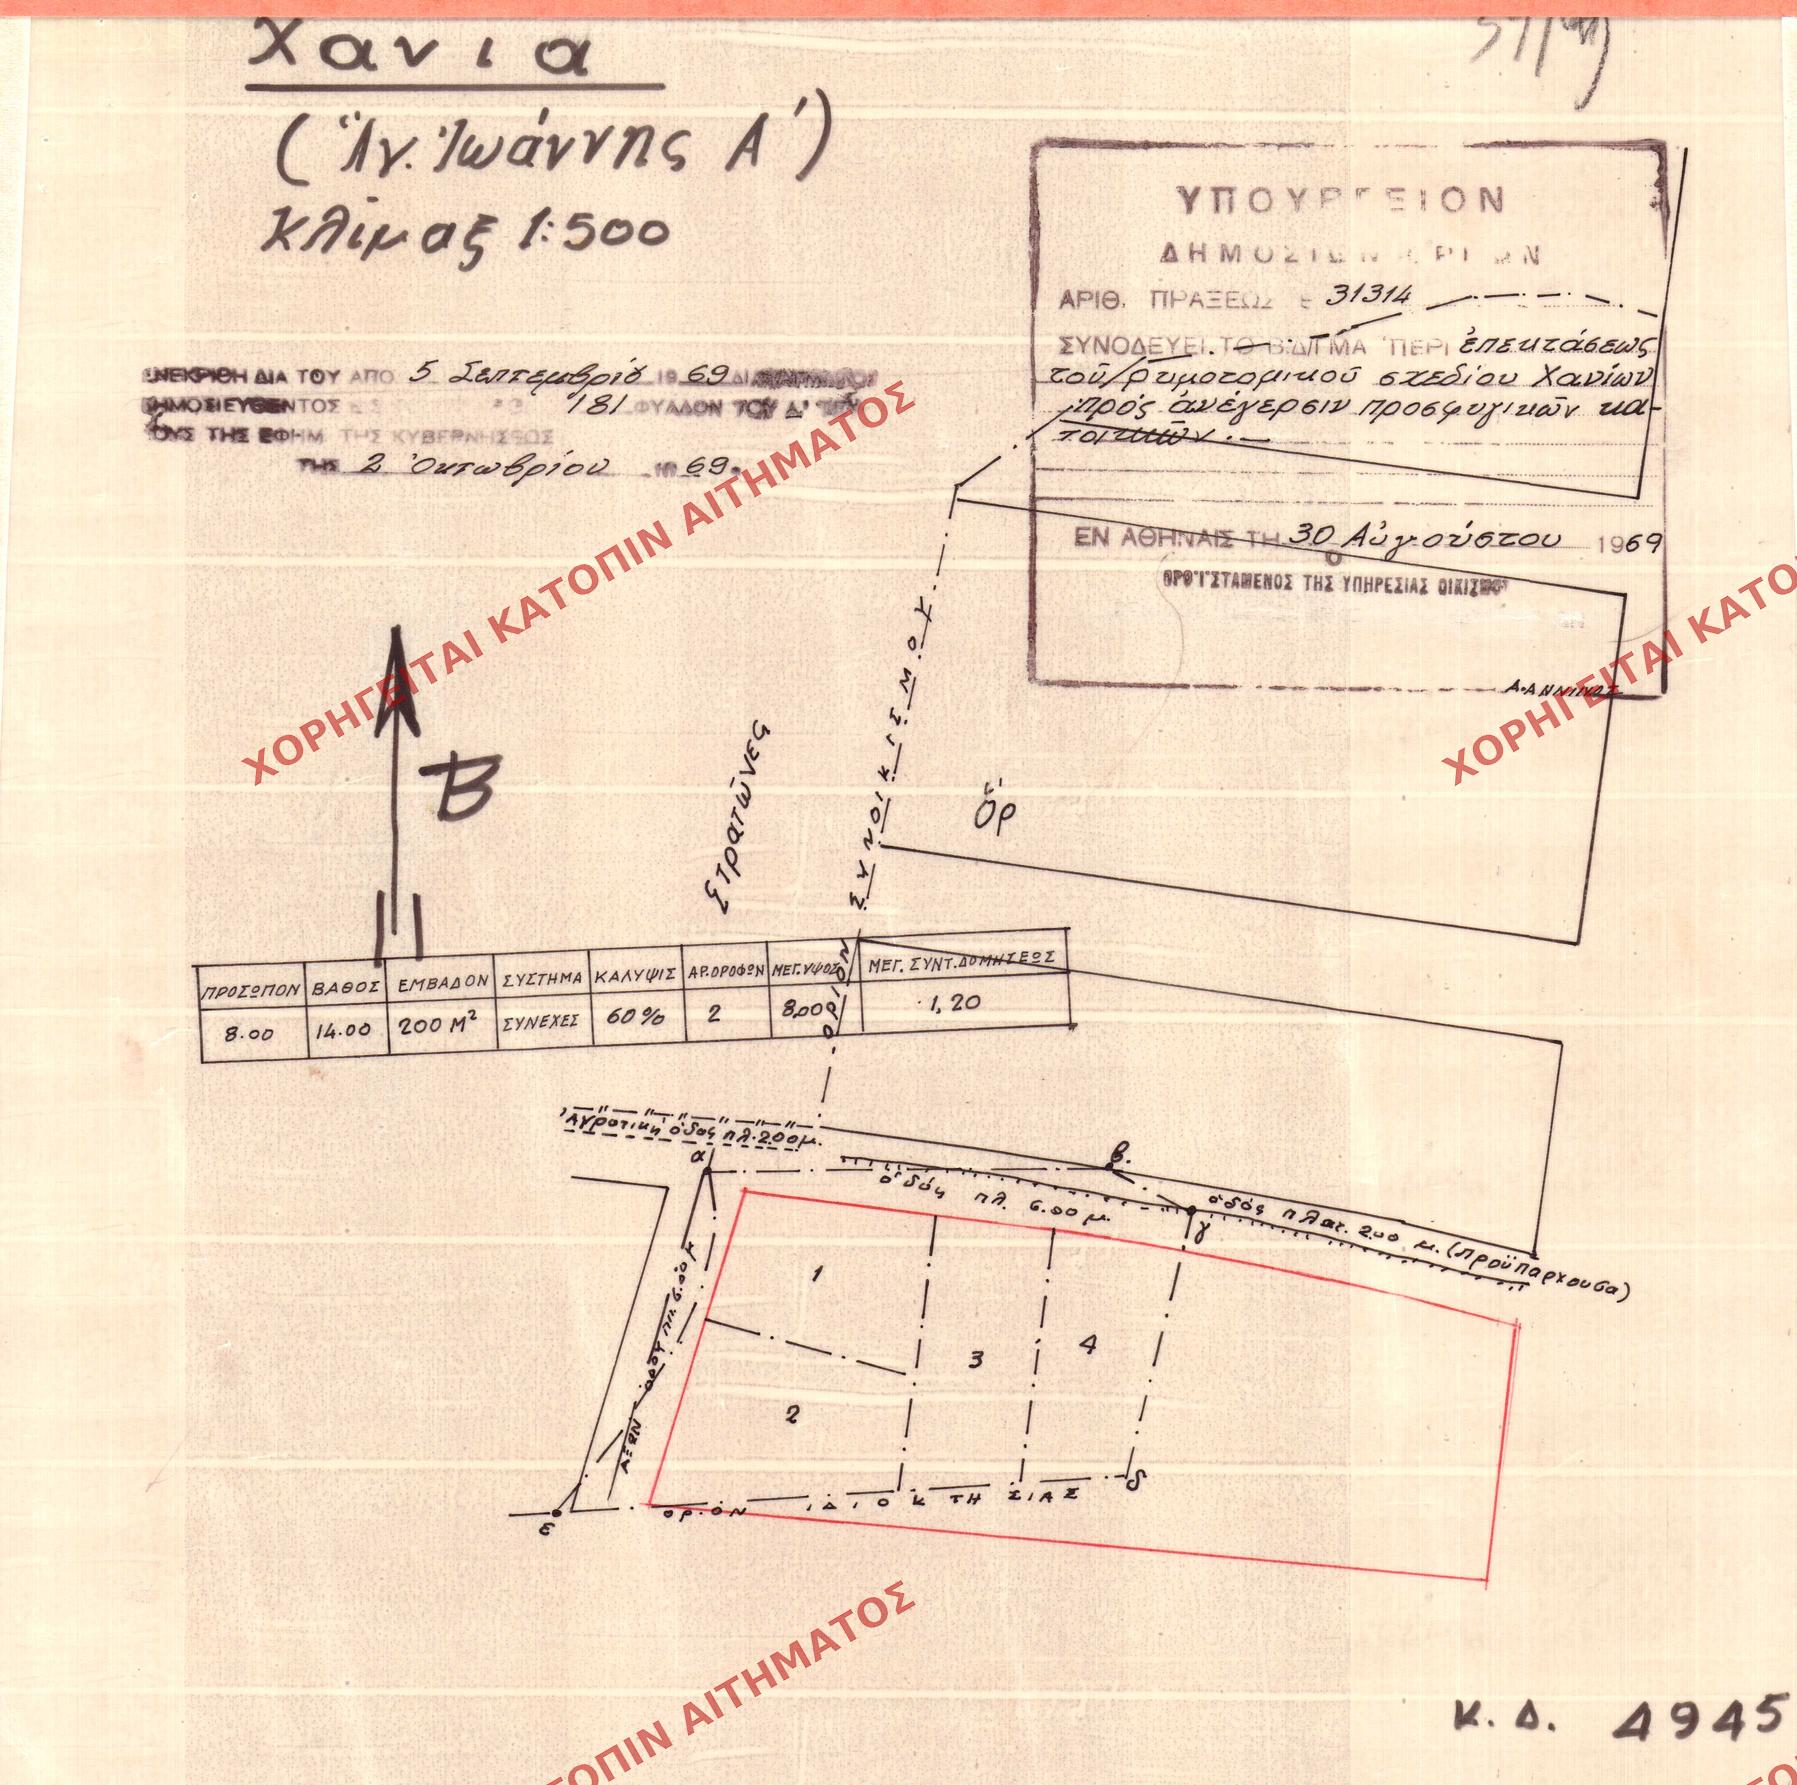 Χανια
(Ἁγ. Ἰωάννης Α')
Κλίμαξ 1:500
ΥΠΟΥΡΓΕΙΟΝ
ΔΗΜΟΣΙΩΝ ΕΡΓΩΝ
ΑΡΙΘ. ΠΡΑΞΕΩΣ Ε 31314
ΣΥΝΟΔΕΥΕΙ ΤΟ Β.Δ/ΓΜΑ ΠΕΡΙ ἐπεκτάσεως
τοῦ ῥυμοτομικοῦ σχεδίου Χανίων
πρός ἀνέγερσιν προσφυγικῶν κα-
τοικιῶν.
ΕΝ ΑΘΗΝΑΙΣ ΤΗ 30 Αὐγούστου 1969
Ο
ΠΡΟΪΣΤΑΜΕΝΟΣ ΤΗΣ ΥΠΗΡΕΣΙΑΣ ΟΙΚΙΣΜΟΥ
Α.ΑΝΝΙΝΟΣ
ΕΝΕΚΡΙΘΗ ΔΙΑ ΤΟΥ ΑΠΟ 5 Σεπτεμβρίου 1969
ΔΗΜΟΣΙΕΥΘΕΝΤΟΣ 181 ΦΥΛΛΟΝ ΤΟΥ Δ'
ΤΟΥΣ ΤΗΣ ΕΦΗΜ ΤΗΣ ΚΥΒΕΡΝΗΣΕΩΣ
ΤΗΣ 2 Ὀκτωβρίου 1969
Β
Στρατῶνες
ΟΡΙΟΝ ΣΥΝΟΙΚΙΣΜΟΥ
Ὅρ
ΠΡΟΣΩΠΟΝ ΒΑΘΟΣ ΕΜΒΑΔΟΝ ΣΥΣΤΗΜΑ ΚΑΛΥΨΙΣ ΑΡ.ΟΡΟΦΩΝ ΜΕΓ.ΥΨΟΣ ΜΕΓ. ΣΥΝΤ.ΔΟΜΗΣΕΩΣ
8.00 14.00 200 Μ² ΣΥΝΕΧΕΣ 60% 2 8,00 1,20
Ἀγροτική ὁδός πλ.2.00μ.
α
β.
ὁδός πλ. 6.00 μ.
γ
ὁδός πλατ. 2.00 μ. (προϋπάρχουσα)
ΑΞΩΝ ΟΔΟΥ ΠΛ. 6.00 μ
1
2
3
4
δ
ε
ΟΡΙΟΝ ΙΔΙΟΚΤΗΣΙΑΣ
Κ. Δ. 4945
ΧΟΡΗΓΕΙΤΑΙ ΚΑΤΟΠΙΝ ΑΙΤΗΜΑΤΟΣ
ΧΟΡΗΓΕΙΤΑΙ ΚΑΤΟ
ΤΟΠΙΝ ΑΙΤΗΜΑΤΟΣ